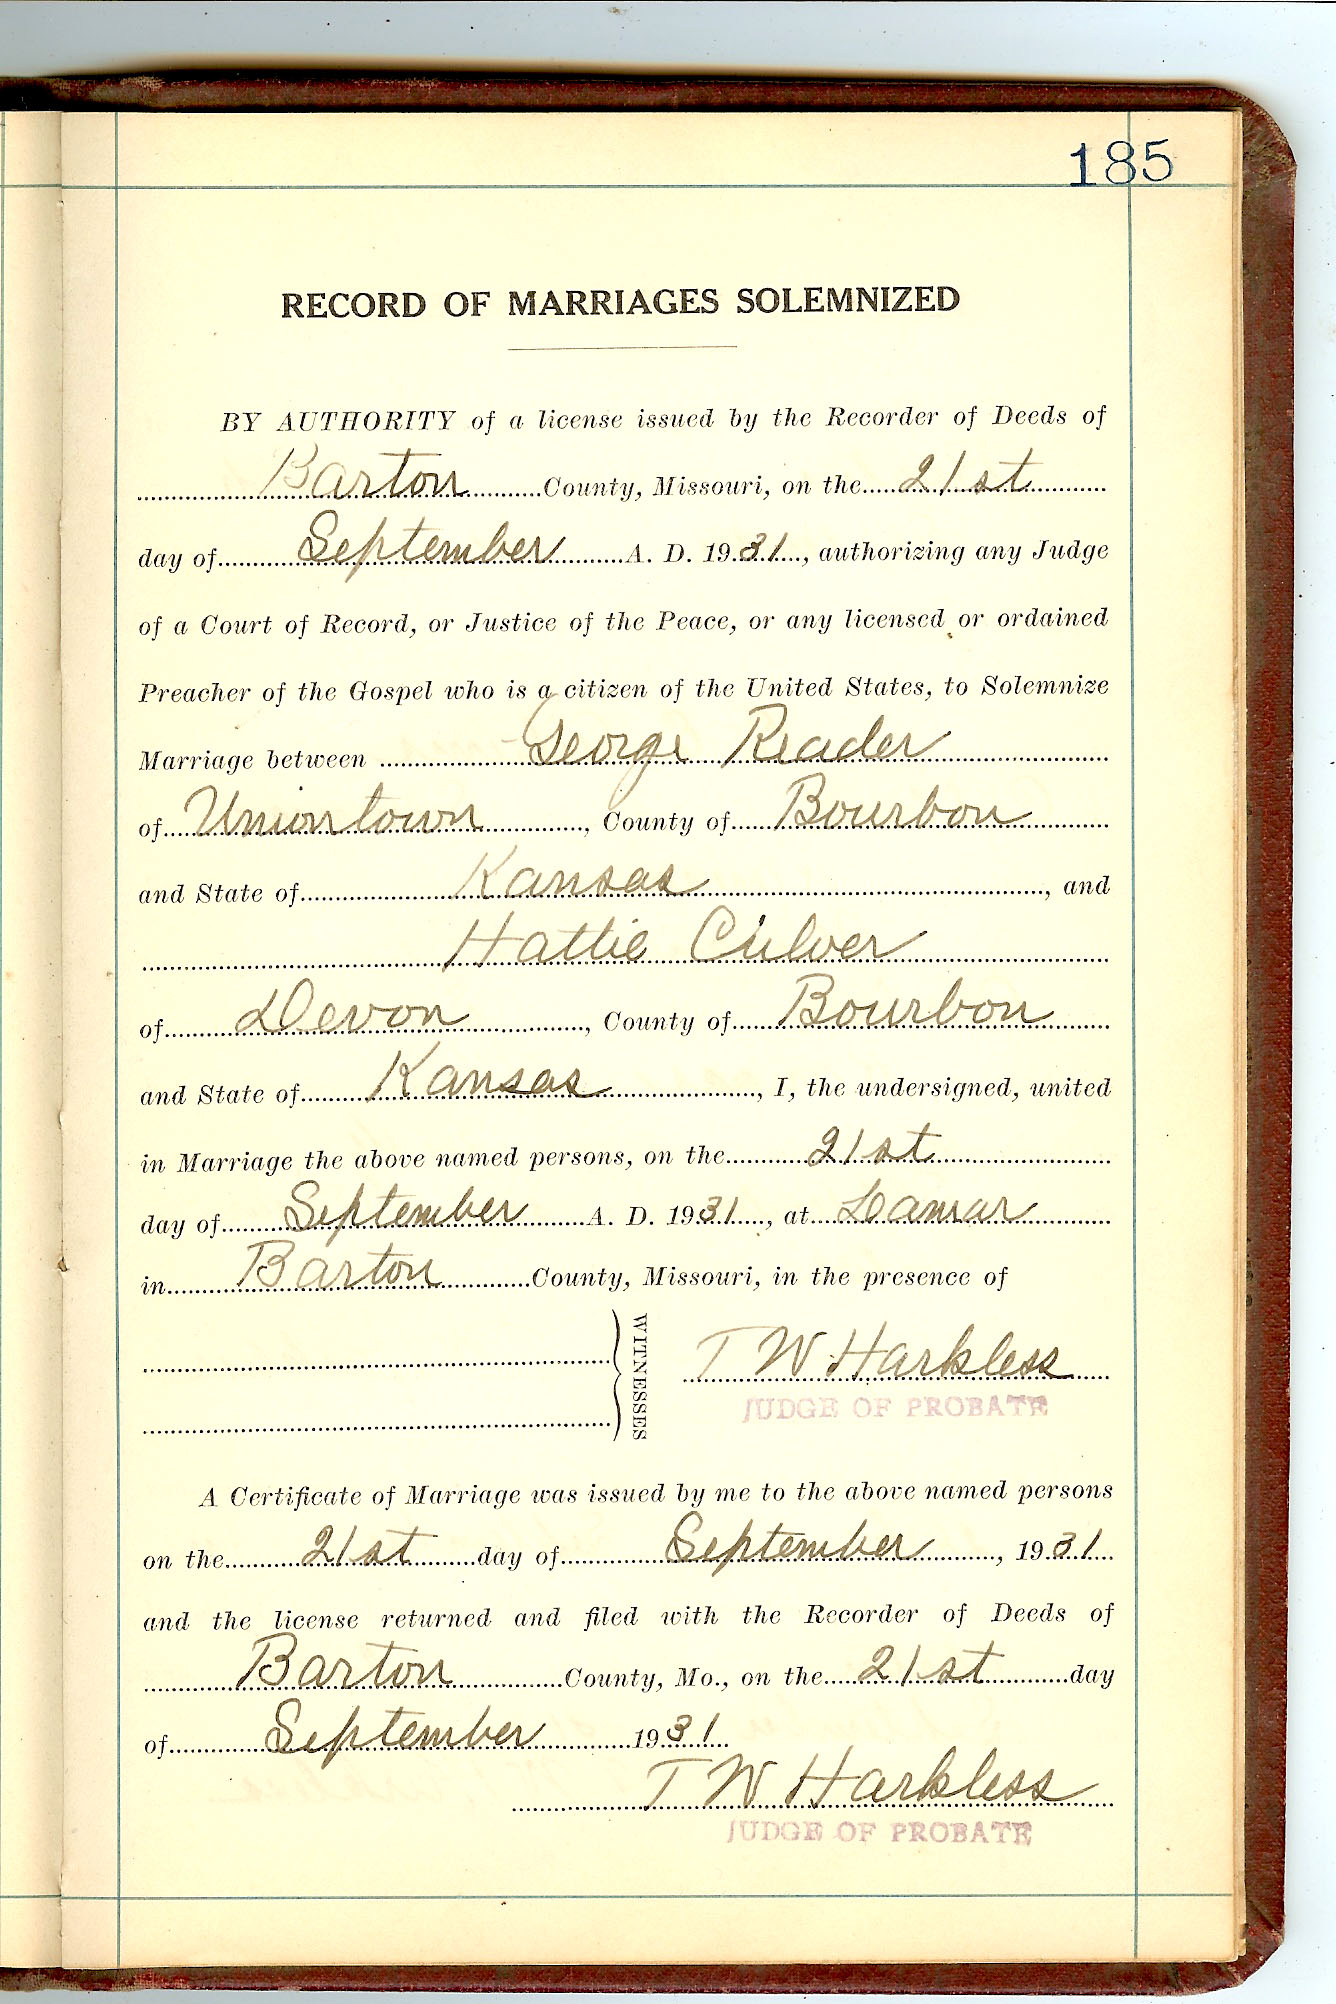 185
RECORD OF MARRIAGES SOLEMNIZED
BY AUTHORITY of a license issued by the Recorder of Deeds of
Barton County, Missouri, on the 21st
day of September A. D. 1931, authorizing any Judge
of a Court of Record, or Justice of the Peace, or any licensed or ordained
Preacher of the Gospel who is a citizen of the United States, to Solemnize
Marriage between George Reader
of Uniontown, County of Bourbon
and State of Kansas, and
Hattie Culver
of Devon, County of Bourbon
and State of Kansas, I, the undersigned, united
in Marriage the above named persons, on the 21st
day of September A. D. 1931, at Lamar
in Barton County, Missouri, in the presence of
WITNESSES
T W Harkless
JUDGE OF PROBATE
A Certificate of Marriage was issued by me to the above named persons
on the 21st day of September, 1931
and the license returned and filed with the Recorder of Deeds of
Barton County, Mo., on the 21st day
of September 1931
T W Harkless
JUDGE OF PROBATE